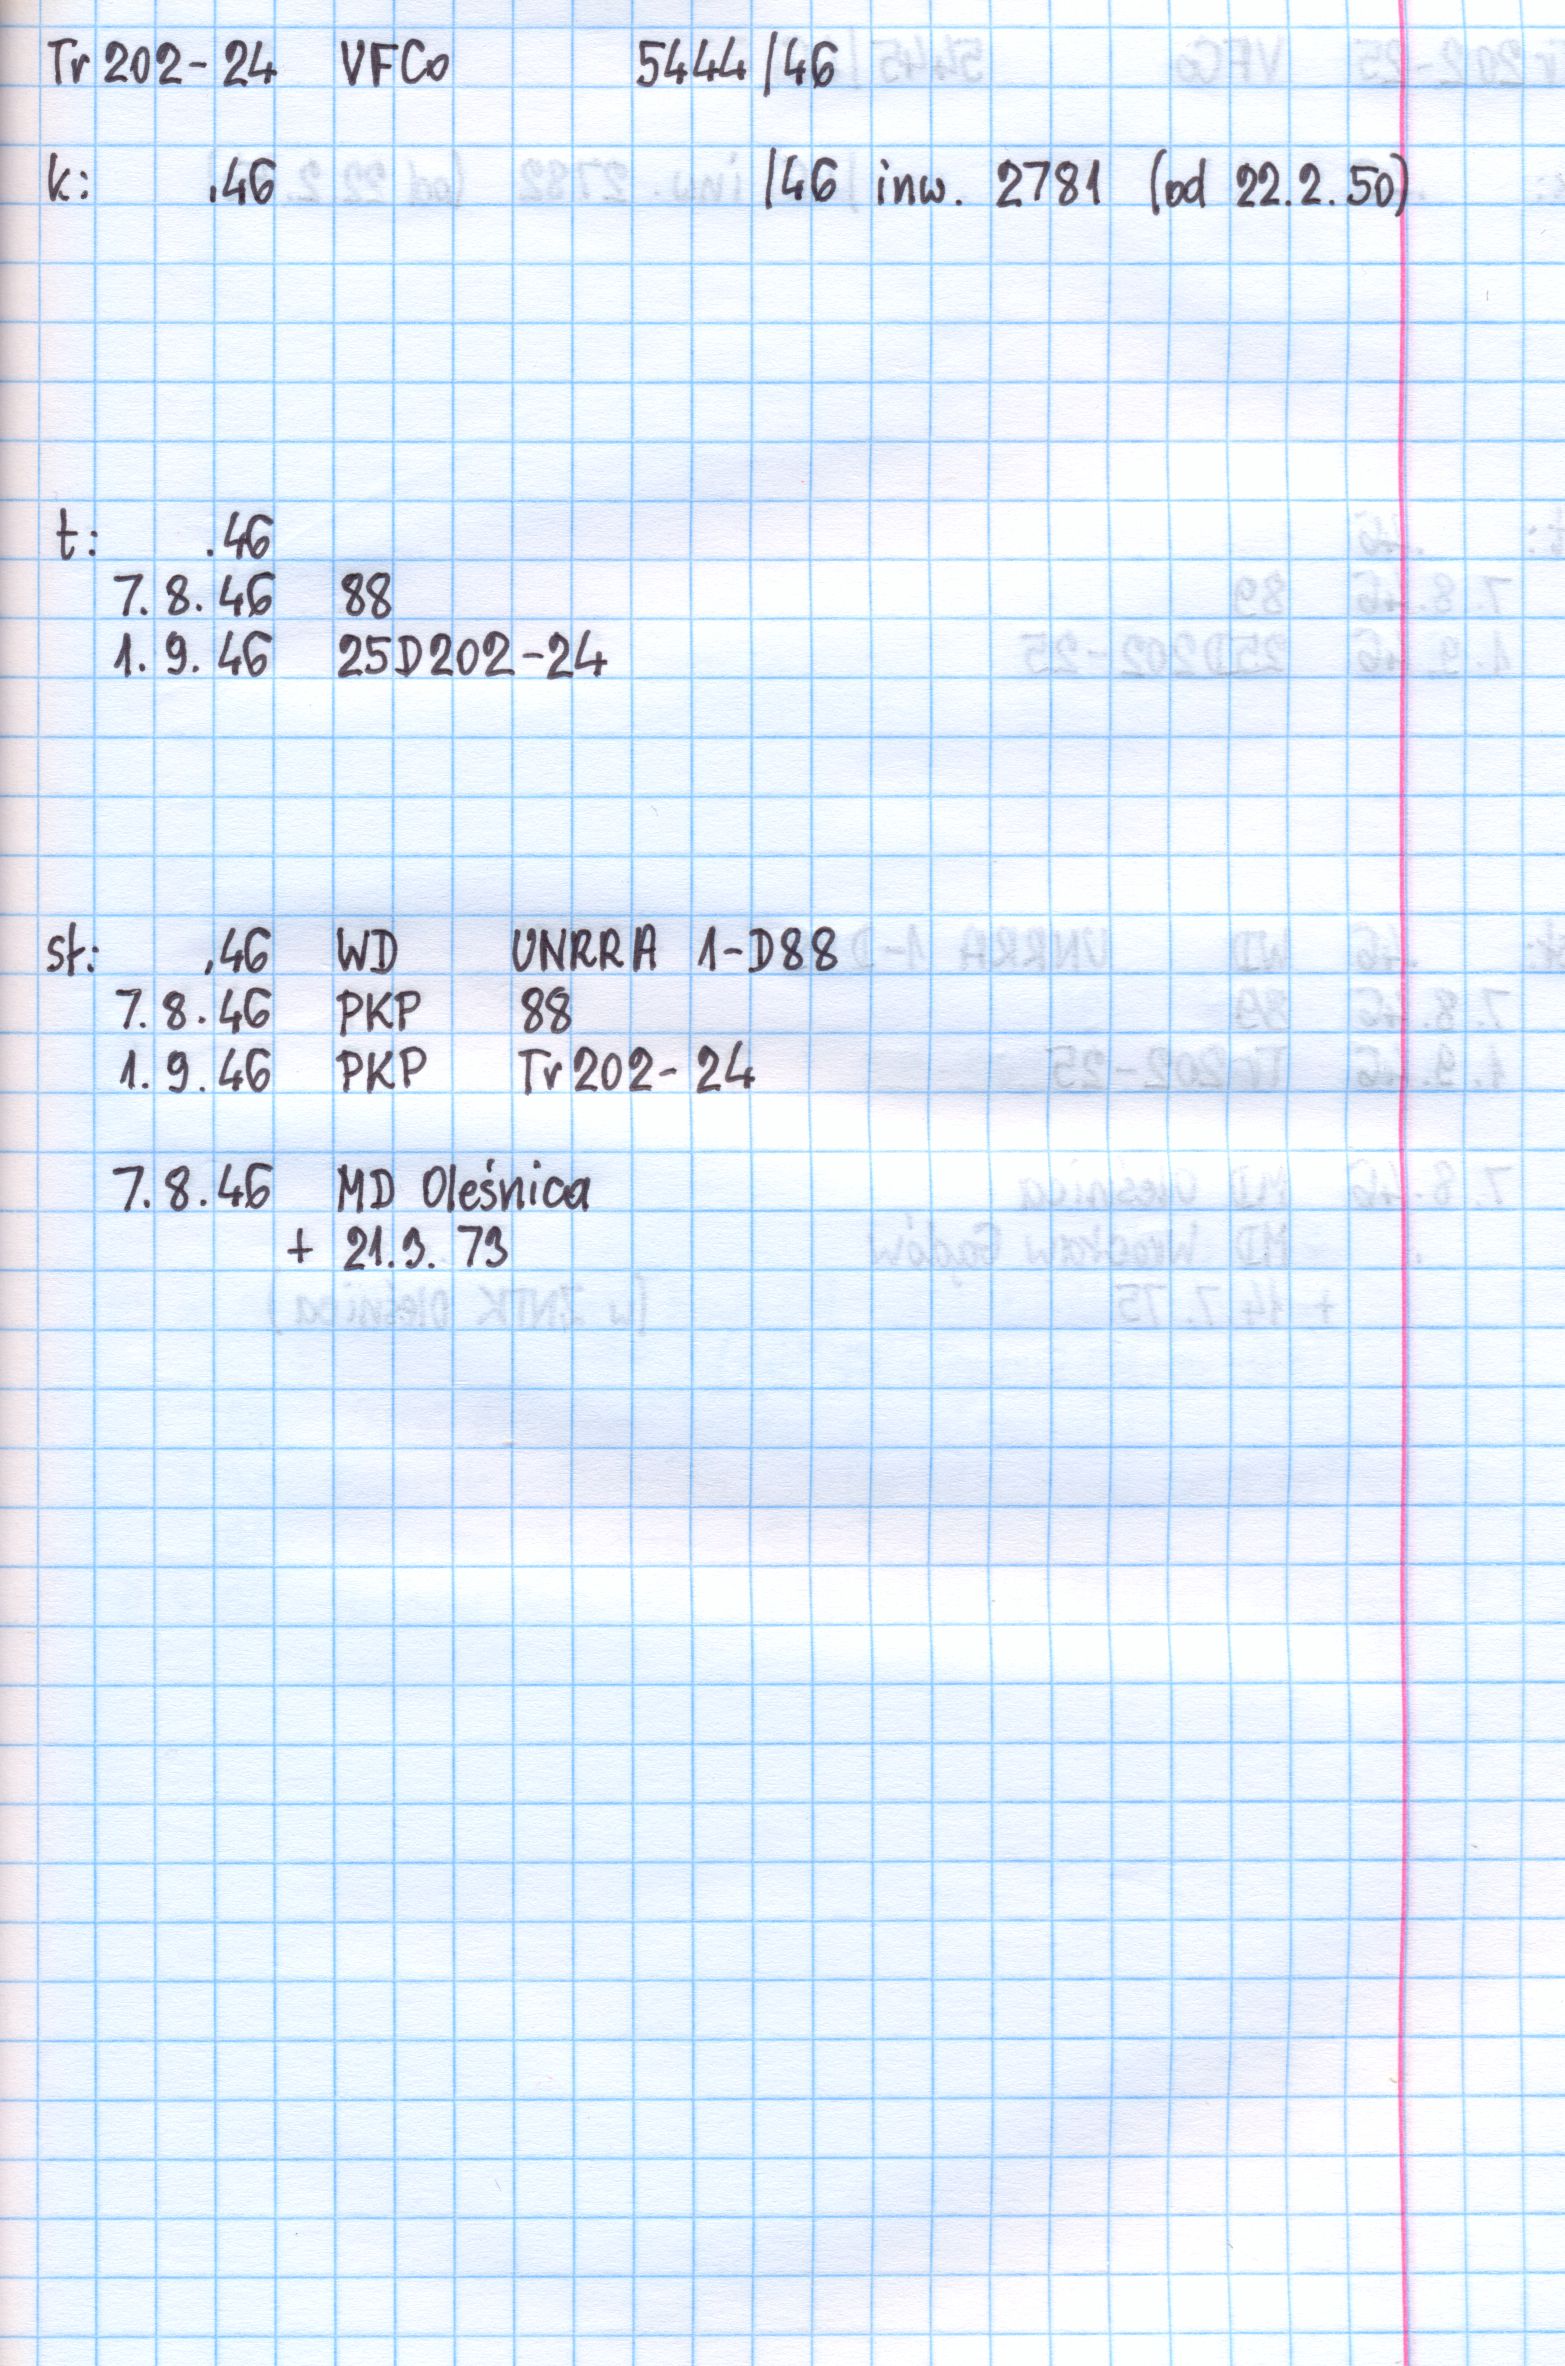 Tr 202-24 VFCo 5444/46
k: .46 /46 inw. 2781 (od 22.2.50)
t: .46
7.8.46 88
1.9.46 25D202-24
st: .46 WD UNRRA 1-D88
7.8.46 PKP 88
1.9.46 PKP Tr202-24
7.8.46 MD Oleśnica
+ 21.9.73